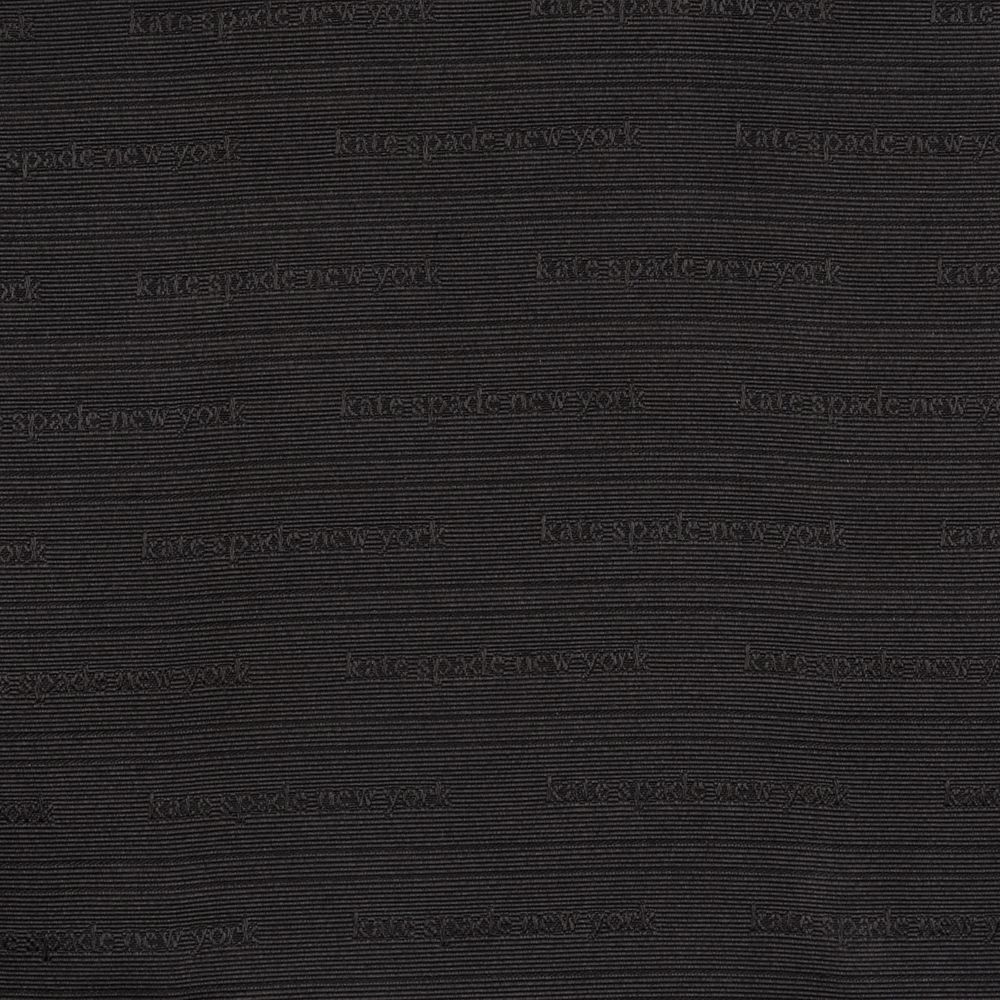 kate spade new york kate spade new york kate
spade new york kate spade new york kate spade new yo
rk kate spade new york kate spade new york kate
spade new york kate spade new york kate spade new y
ork kate spade new york kate spade new york kate
e spade new york kate spade new york kate spade new y
ork kate spade new york kate spade new york kate
e spade new york kate spade new york kate spade new y